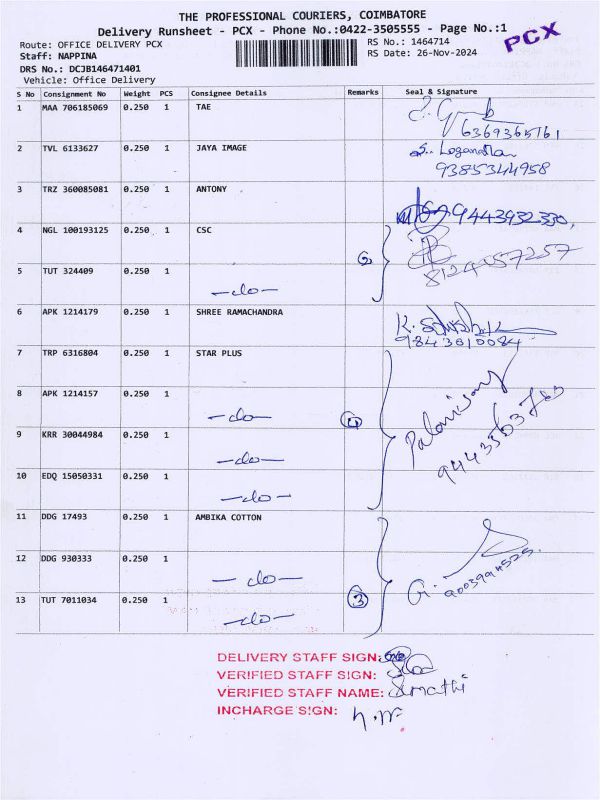 THE PROFESSIONAL COURIERS, COIMBATORE
Delivery Runsheet - PCX - Phone No.:0422-3505555 - Page No.:1
PCX
Route: OFFICE DELIVERY PCX RS No.: 1464714
Staff: NAPPINA RS Date: 26-Nov-2024
DRS No.: DCJB146471401
Vehicle: Office Delivery
S No Consignment No Weight PCS Consignee Details Remarks Seal & Signature
1 MAA 706185069 0.250 1 TAE
6369365161
2 TVL 6133627 0.250 1 JAYA IMAGE S. Loganathan
9385344958
3 TRZ 360085081 0.250 1 ANTONY
9443932330,
4 NGL 100193125 0.250 1 CSC
2 8124057257
5 TUT 324409 0.250 1
—do—
6 APK 1214179 0.250 1 SHREE RAMACHANDRA
9843010084
7 TRP 6316804 0.250 1 STAR PLUS
8 APK 1214157 0.250 1
—do— 4
9 KRR 30044984 0.250 1
—do—
10 EDQ 15050331 0.250 1
—do—
11 DDG 17493 0.250 1 AMBIKA COTTON
12 DDG 930333 0.250 1
—do—
13 TUT 7011034 0.250 1 3 G.
—do—
DELIVERY STAFF SIGN:
VERIFIED STAFF SIGN:
VERIFIED STAFF NAME: Sumathi
INCHARGE SIGN: